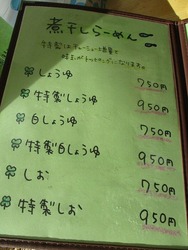 煮干しらーめん
特製はチャーシュー増量で
味玉がトッピングになります
しょうゆ 750円
特製しょうゆ 950円
白しょうゆ 750円
特製白しょうゆ 950円
しお 750円
特製しお 950円